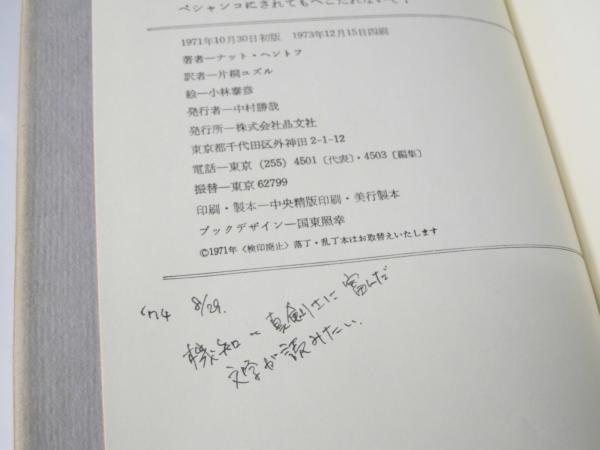 ペシャンコにされてもへこたれないぞ!
1971年10月30日初版 1973年12月15日四刷
著者―ナット・ヘントフ
訳者―片桐ユズル
絵―小林泰彦
発行者―中村勝哉
発行所―株式会社晶文社
東京都千代田区外神田2-1-12
電話―東京 (255) 4501〔代表〕・4503〔編集〕
振替―東京62799
印刷・製本―中央精版印刷・美行製本
ブックデザイン―国東照幸
©1971年〈検印廃止〉落丁・乱丁本はお取替えいたします
'74 8/29.
機知と真剣さに富んだ
文学が読みたい.